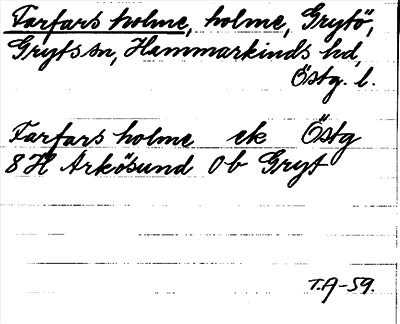 Farfars holme, holme, Grytö,
Gryts sn, Hammarkinds hd,
Östg. l.
Farfars holme ek Östg
8 H Arkösund 0 b Gryt
T.A-59.